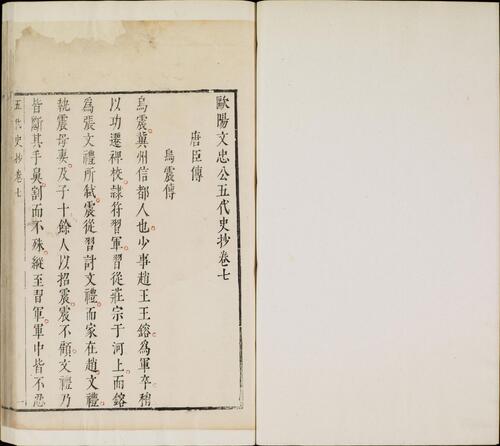 歐陽文忠公五代史抄卷七
唐臣傳
烏震傳
烏震冀州信都人也少事趙王王鎔為軍卒稍
以功遷裨校隸符習軍習從莊宗于河上而鎔
為張文禮所弒震從習討文禮而家在趙文禮
執震母妻及子十餘人以招震震不顧文禮乃
皆斷其手鼻割而不殊縱至習軍軍中皆不忍
五代史抄卷七
一